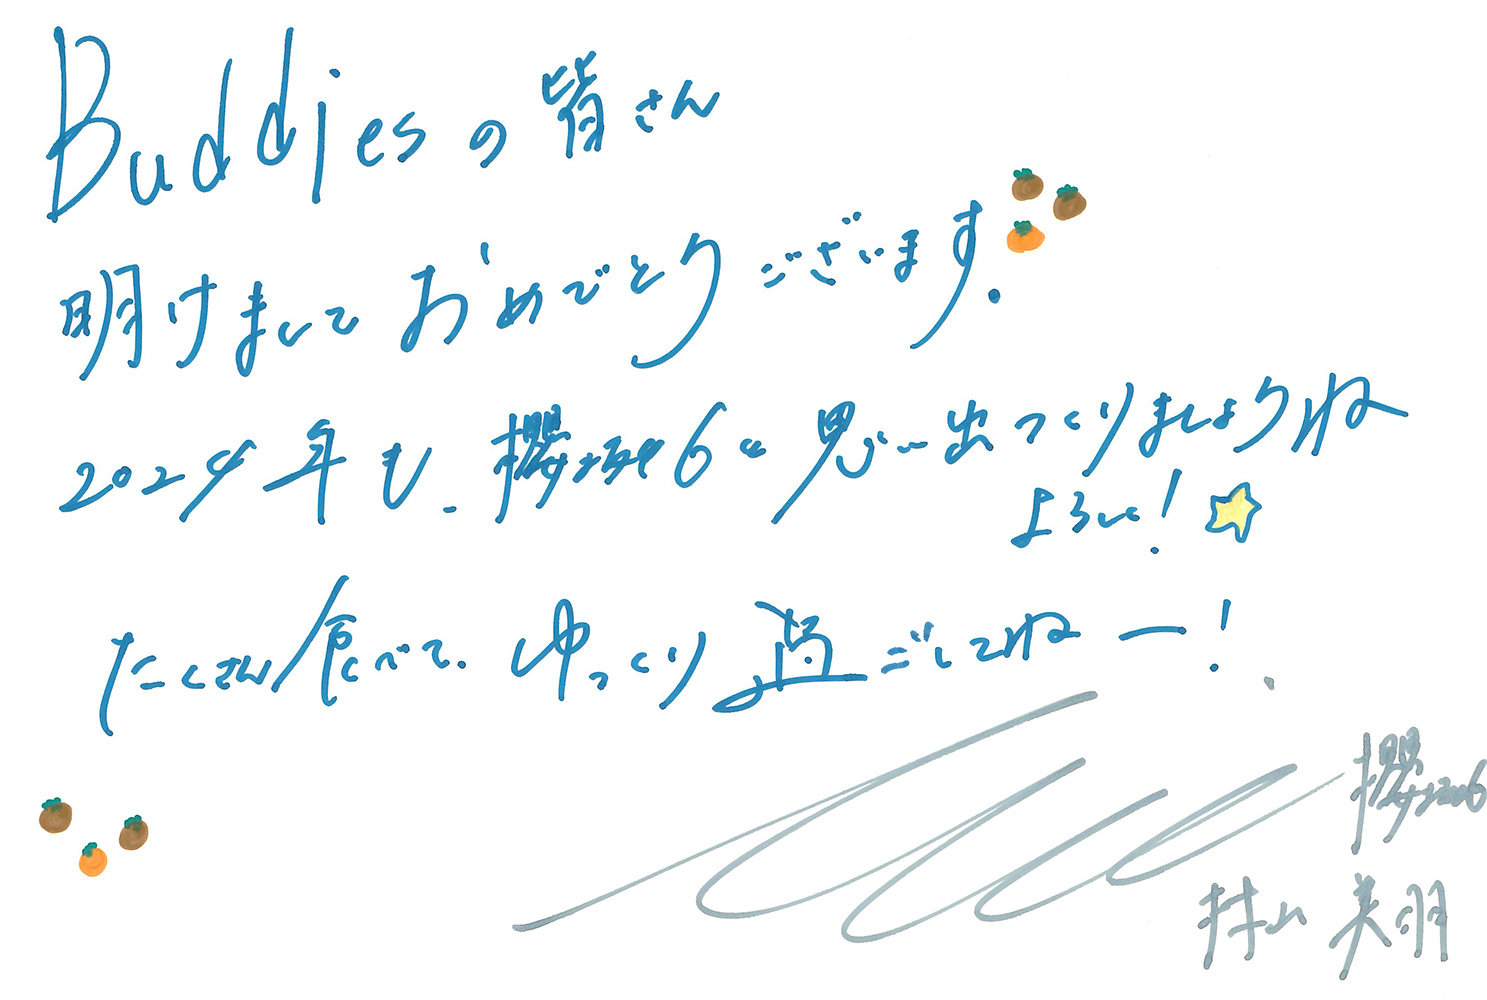 Buddiesの皆さん
明けましておめでとうございます.
2024年も、櫻坂46と思い出つくりましょうね
よろしく!
たくさん食べて、ゆっくり過ごしてねー!
櫻坂46
村山 美羽